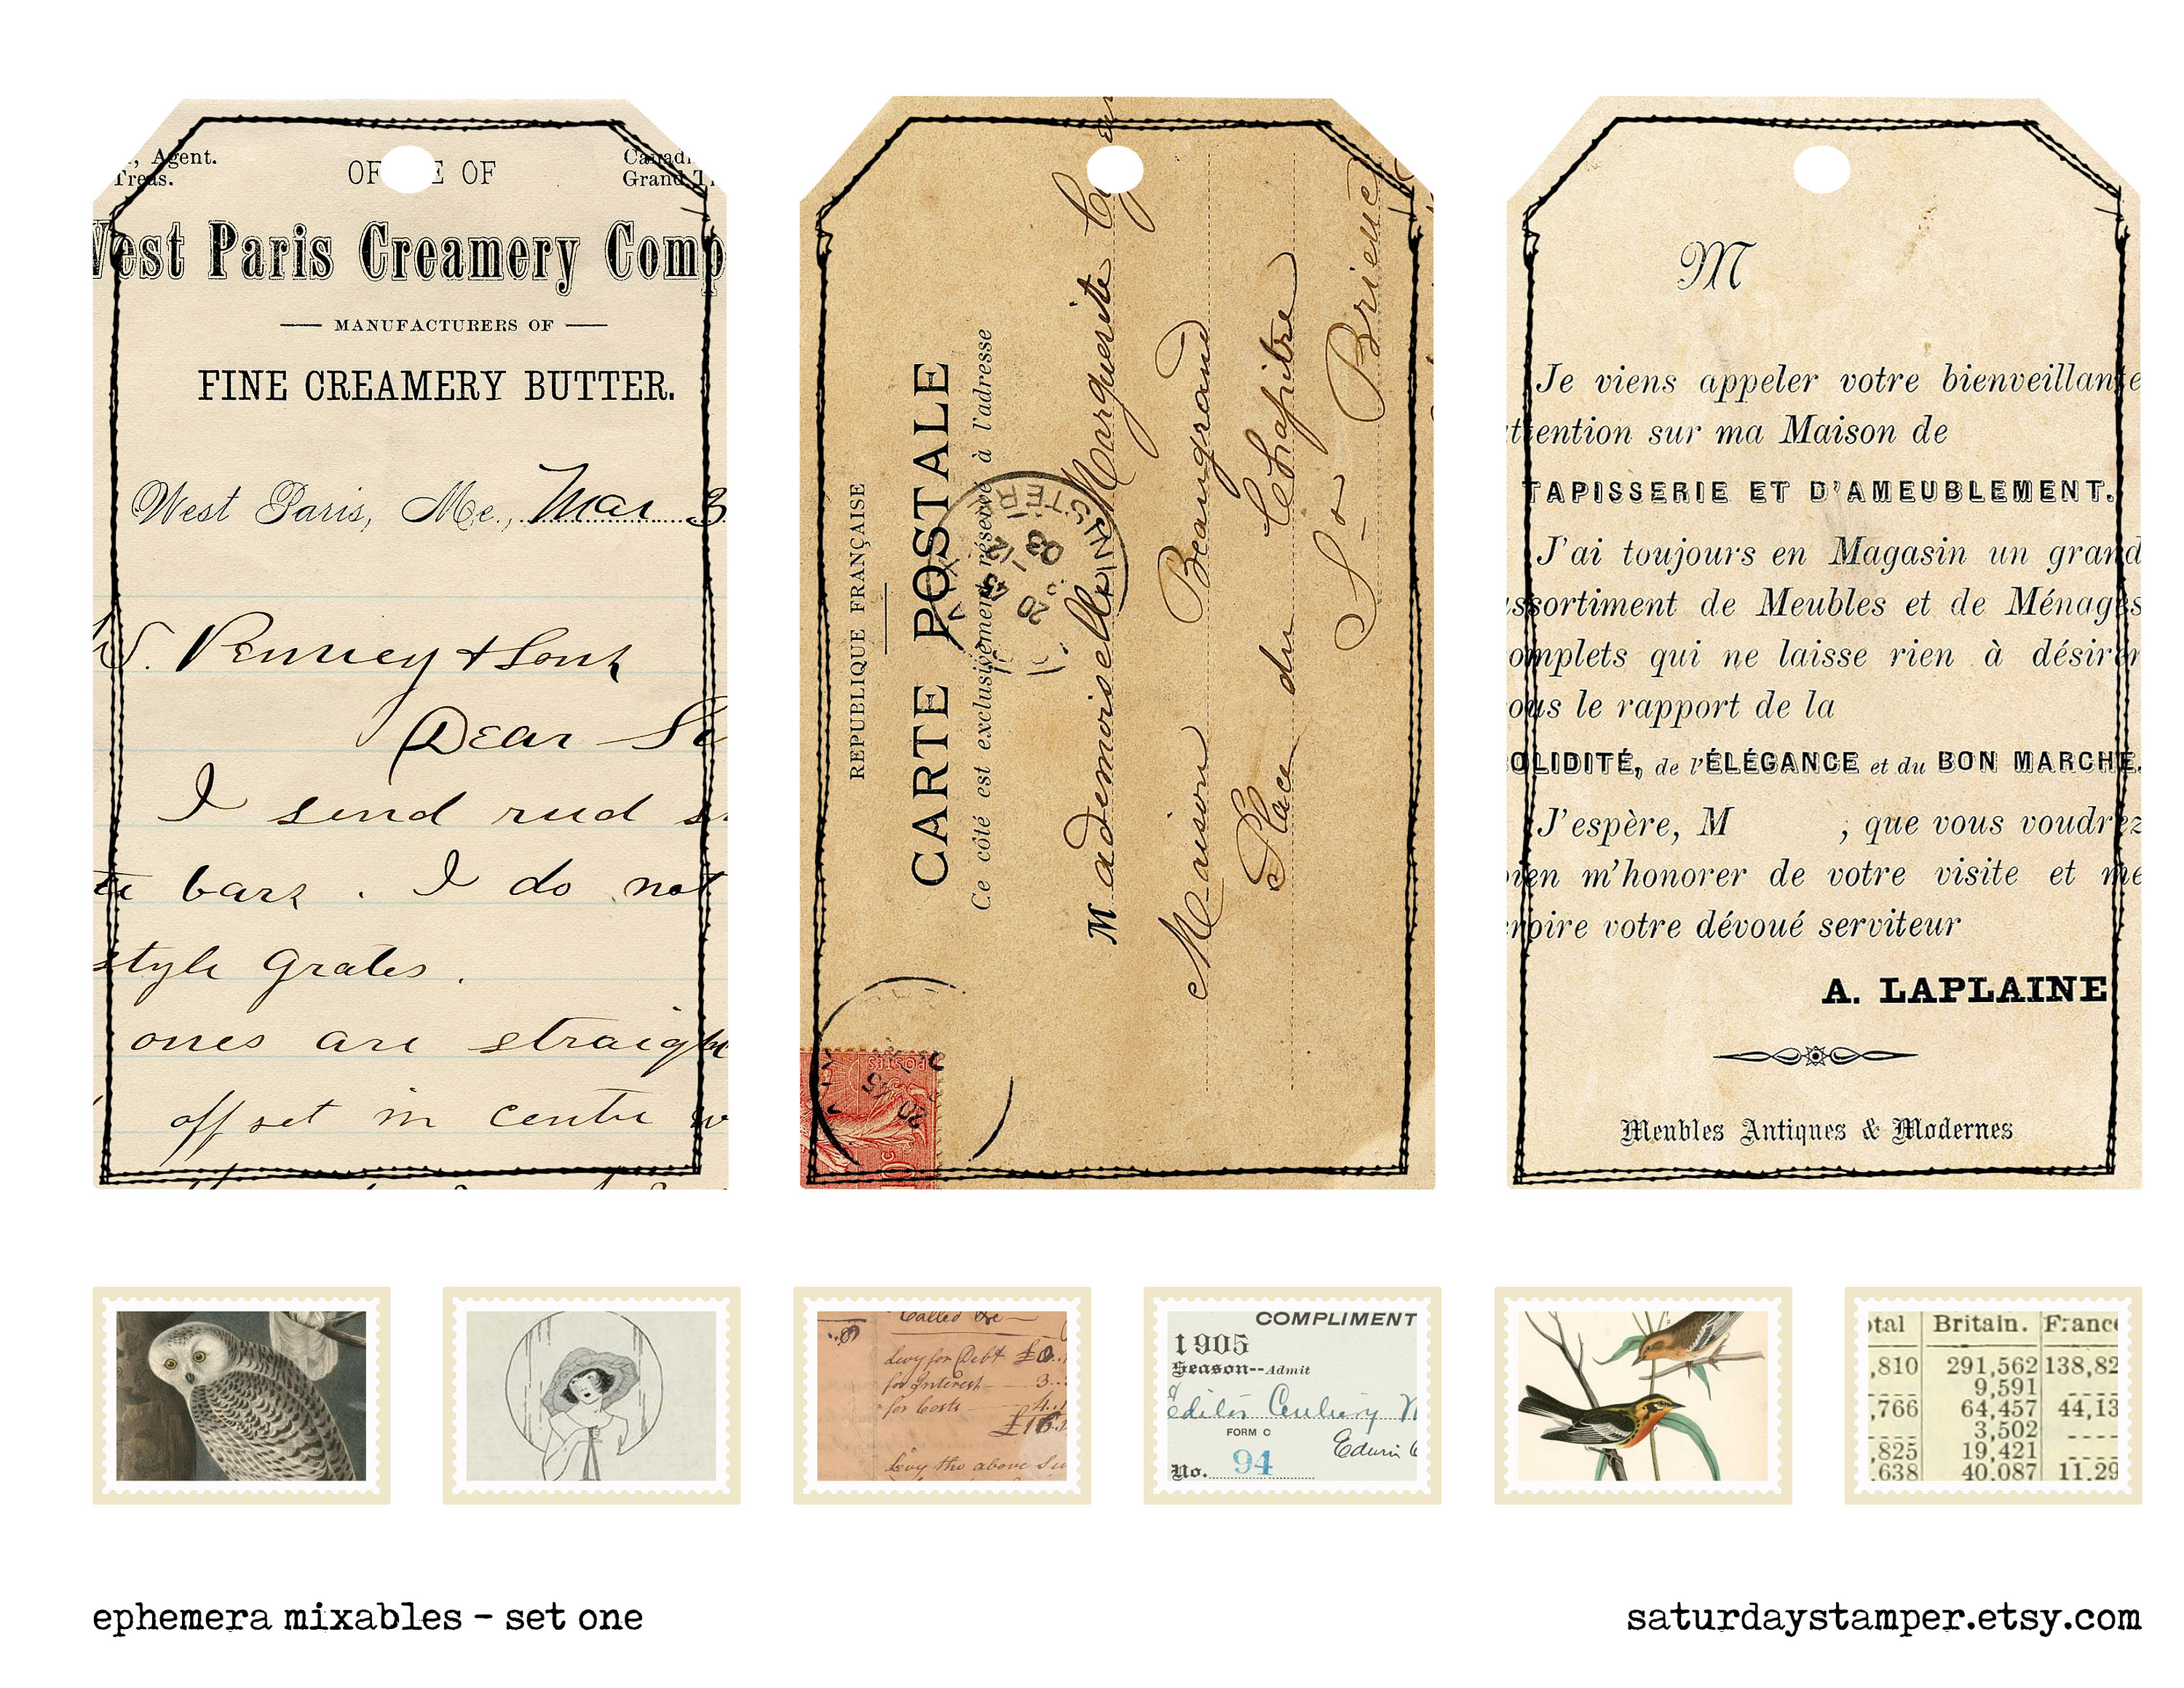 Agent.
Treas.
OF
E OF
Grand
West Paris Creamery Comp
MANUFACTURERS OF
FINE CREAMERY BUTTER.
West Paris, Me., Mar 3
S. Penney & Sons
Dear
I send
bars. I do not
style grates.
ones are straigh
off set in centre w
REPUBLIQUE FRANÇAISE
CARTE POSTALE
Ce côté est exclusivement réservé à l'adresse
Mademoiselle Marguerite
Maison Beaugrand
Place du Chapitre
St Brieuc
FINISTÈRE
20
12
03
POSTES
M
Je viens appeler votre bienveillante
ttention sur ma Maison de
TAPISSERIE ET D'AMEUBLEMENT.
J'ai toujours en Magasin un grand
ssortiment de Meubles et de Ménages
omplets qui ne laisse rien à désirer
ous le rapport de la
OLIDITÉ, de l'ÉLÉGANCE et du BON MARCHÉ.
J'espère, M , que vous voudrez
ien m'honorer de votre visite et me
roire votre dévoué serviteur
A. LAPLAINE
Meubles Antiques & Modernes
Called
Levy for Debt
for Interest 3
for Costs 4
Levy the above
COMPLIMENT
1905
Season--Admit
Editor Century
FORM C
Edwin
No. 94
otal Britain. France
,810 291,562 138,82
9,591
,766 64,457 44,13
3,502
,825 19,421
,638 40,087 11,29
ephemera mixables - set one
saturdaystamper.etsy.com